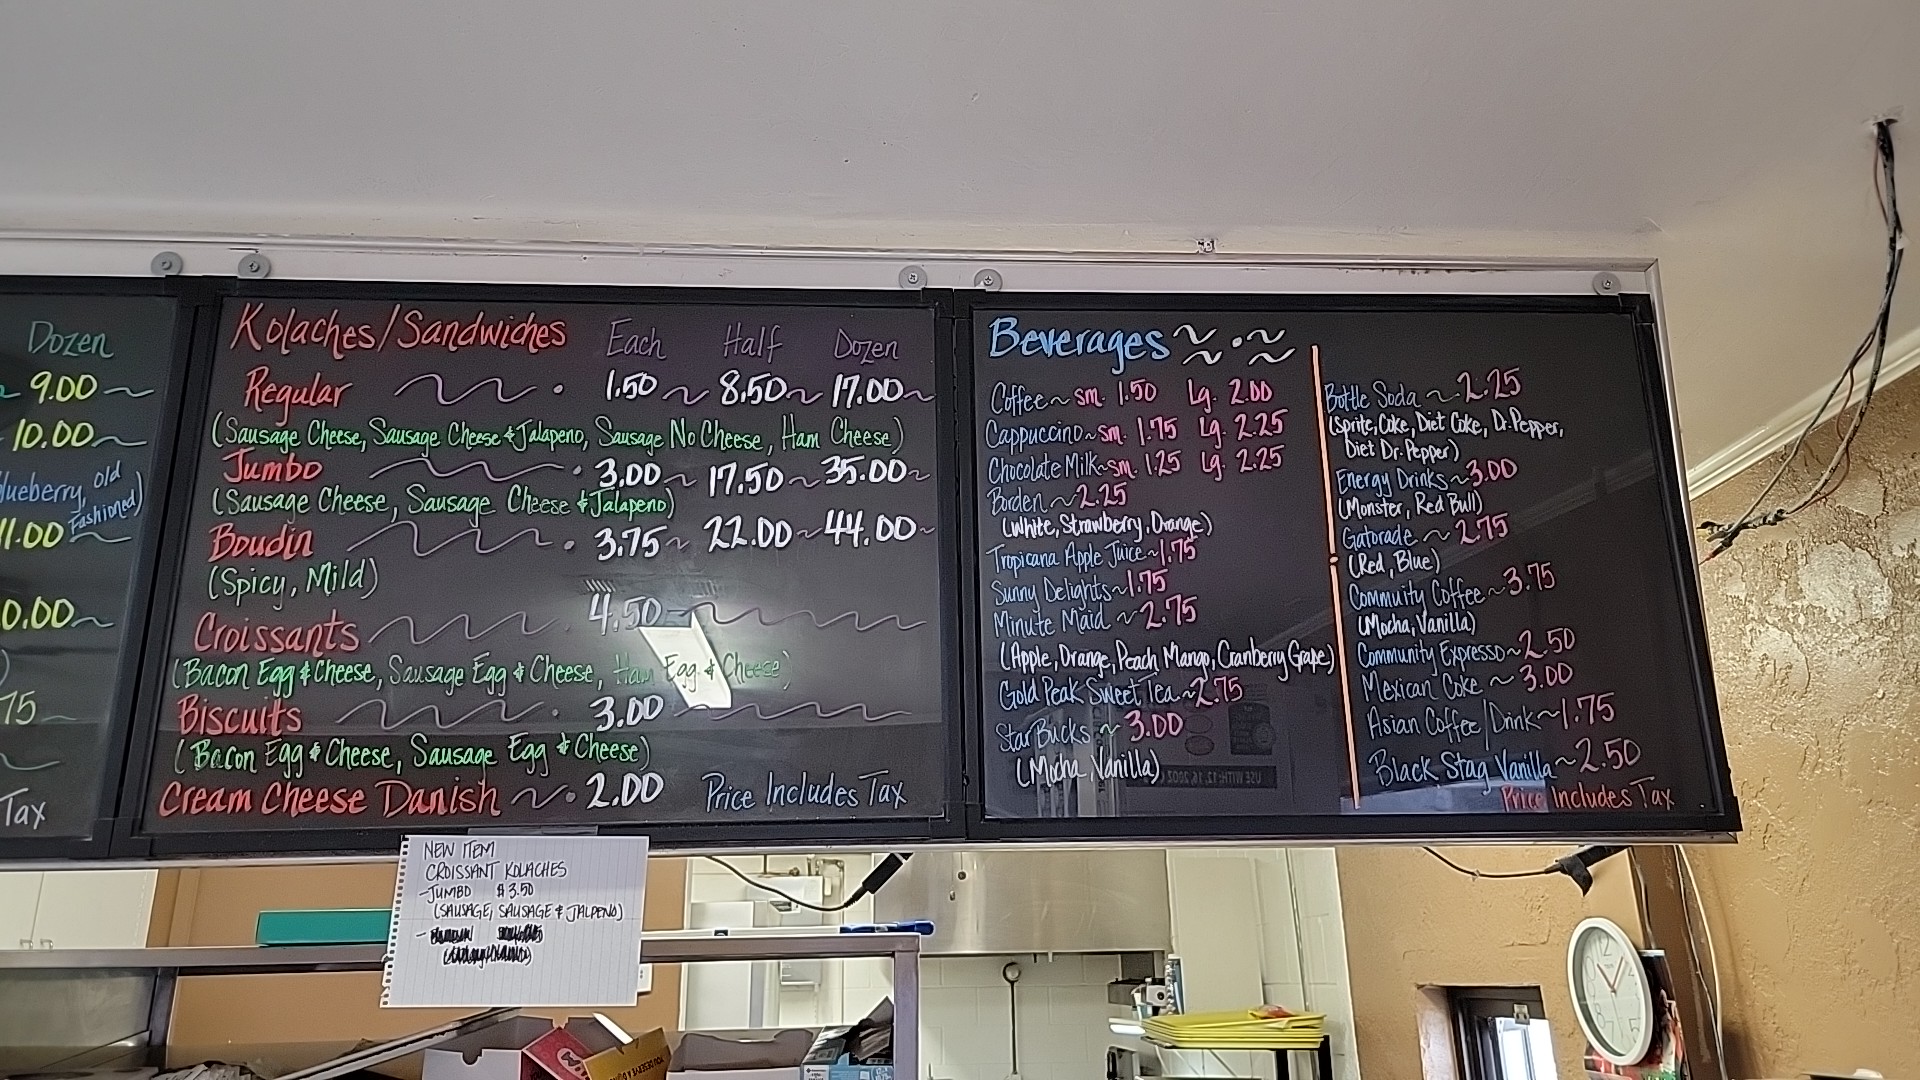 Dozen
9.00
10.00
blueberry, old
Fashioned)
11.00
0.00
)
75
Tax
Kolaches/Sandwiches Each Half Dozen
Regular 1.50 8.50 17.00
(Sausage Cheese, Sausage Cheese & Jalapeno, Sausage No Cheese, Ham Cheese)
Jumbo 3.00 17.50 35.00
(Sausage Cheese, Sausage Cheese & Jalapeno)
Boudin 3.75 22.00 44.00
(Spicy, Mild)
Croissants 4.50
(Bacon Egg & Cheese, Sausage Egg & Cheese, Ham Egg & Cheese)
Biscuits 3.00
(Bacon Egg & Cheese, Sausage Egg & Cheese)
Cream Cheese Danish ~ 2.00 Price Includes Tax
NEW ITEM
CROISSANT KOLACHES
-JUMBO $3.50
(SAUSAGE, SAUSAGE & JALPENO)
Beverages
Coffee ~ sm. 1.50 Lg. 2.00
Cappuccino ~ sm. 1.75 Lg. 2.25
Chocolate Milk ~ sm. 1.25 Lg. 2.25
Borden ~ 2.25
(White, Strawberry, Orange)
Tropicana Apple Juice ~ 1.75
Sunny Delights ~ 1.75
Minute Maid ~ 2.75
(Apple, Orange, Peach Mango, Cranberry Grape)
Gold Peak Sweet Tea ~ 2.75
StarBucks ~ 3.00
(Mocha, Vanilla)
Bottle Soda ~ 2.25
(Sprite, Coke, Diet Coke, Dr. Pepper,
Diet Dr. Pepper)
Energy Drinks ~ 3.00
(Monster, Red Bull)
Gatorade ~ 2.75
(Red, Blue)
Commuity Coffee ~ 3.75
(Mocha, Vanilla)
Community Expresso ~ 2.50
Mexican Coke ~ 3.00
Asian Coffee/Drink ~ 1.75
Black Stag Vanilla ~ 2.50
Price Includes Tax